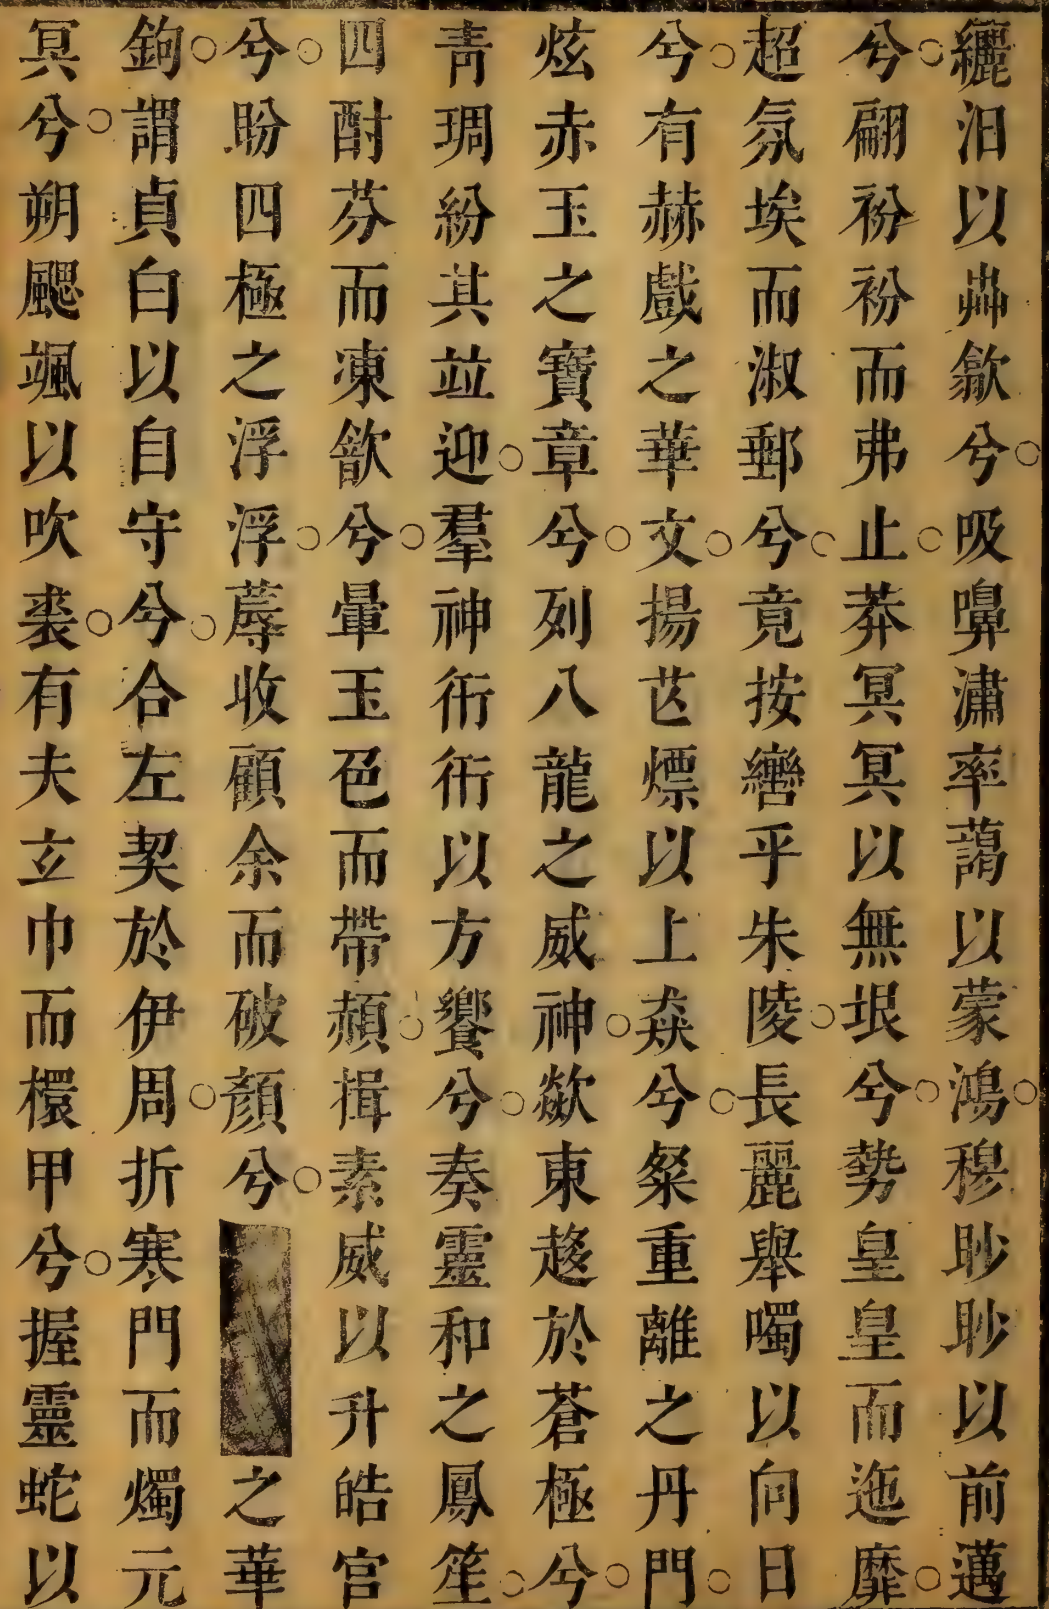 纚汨以歊兮吸嚊潚率藹以蒙鴻穆眇眇以前邁
兮翩衯衯而弗止莽冥冥以無垠兮勢皇皇而迤靡
超氛埃而淑郵兮竟按轡乎朱陵長麗舉噣以向日
兮有赫戲之華文揚芑熛以上猋兮粲重離之丹門
炫赤玉之寶章兮列八龍之威神歘東趍於蒼極兮
靑琱紛其竝迎羣神衎衎以方饗兮奏靈和之鳳笙
四酎芬而凍飲兮暈玉色而帶頳揖素威以升皓宮
兮盼四極之浮浮蓐收顧余而破顏兮之華
鉤謂貞白以自守兮合左契於伊周折寒門而燭元
冥兮朔颸颯以吹裘有夫立巾而檈甲兮握靈蛇以